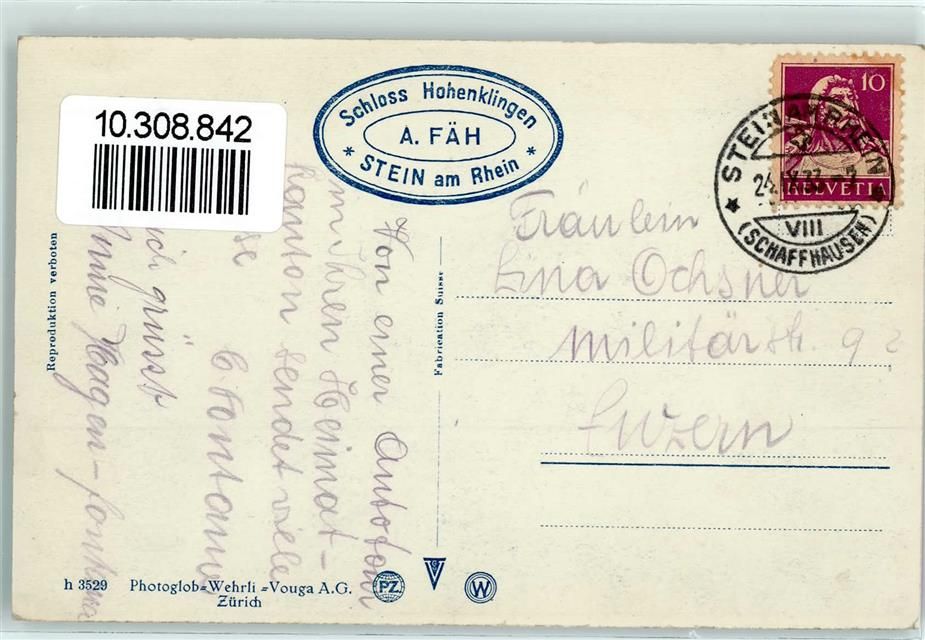 10.308.842
Schloss Hohenklingen
A. FÄH
* STEIN am Rhein *
10
HELVETIA
STEIN AM RHEIN
VIII
(SCHAFFHAUSEN)
Von einer Autotour
in Ihren Heimat-
kanton sendet viele
grüsst
Hagen-
Fräulein
Lina Ochsner
Militärstr. 92
Luzern
Reproduktion verboten
Fabrication Suisse
h 3529 Photoglob=Wehrli =Vouga A.G.
Zürich
PZ
V
W